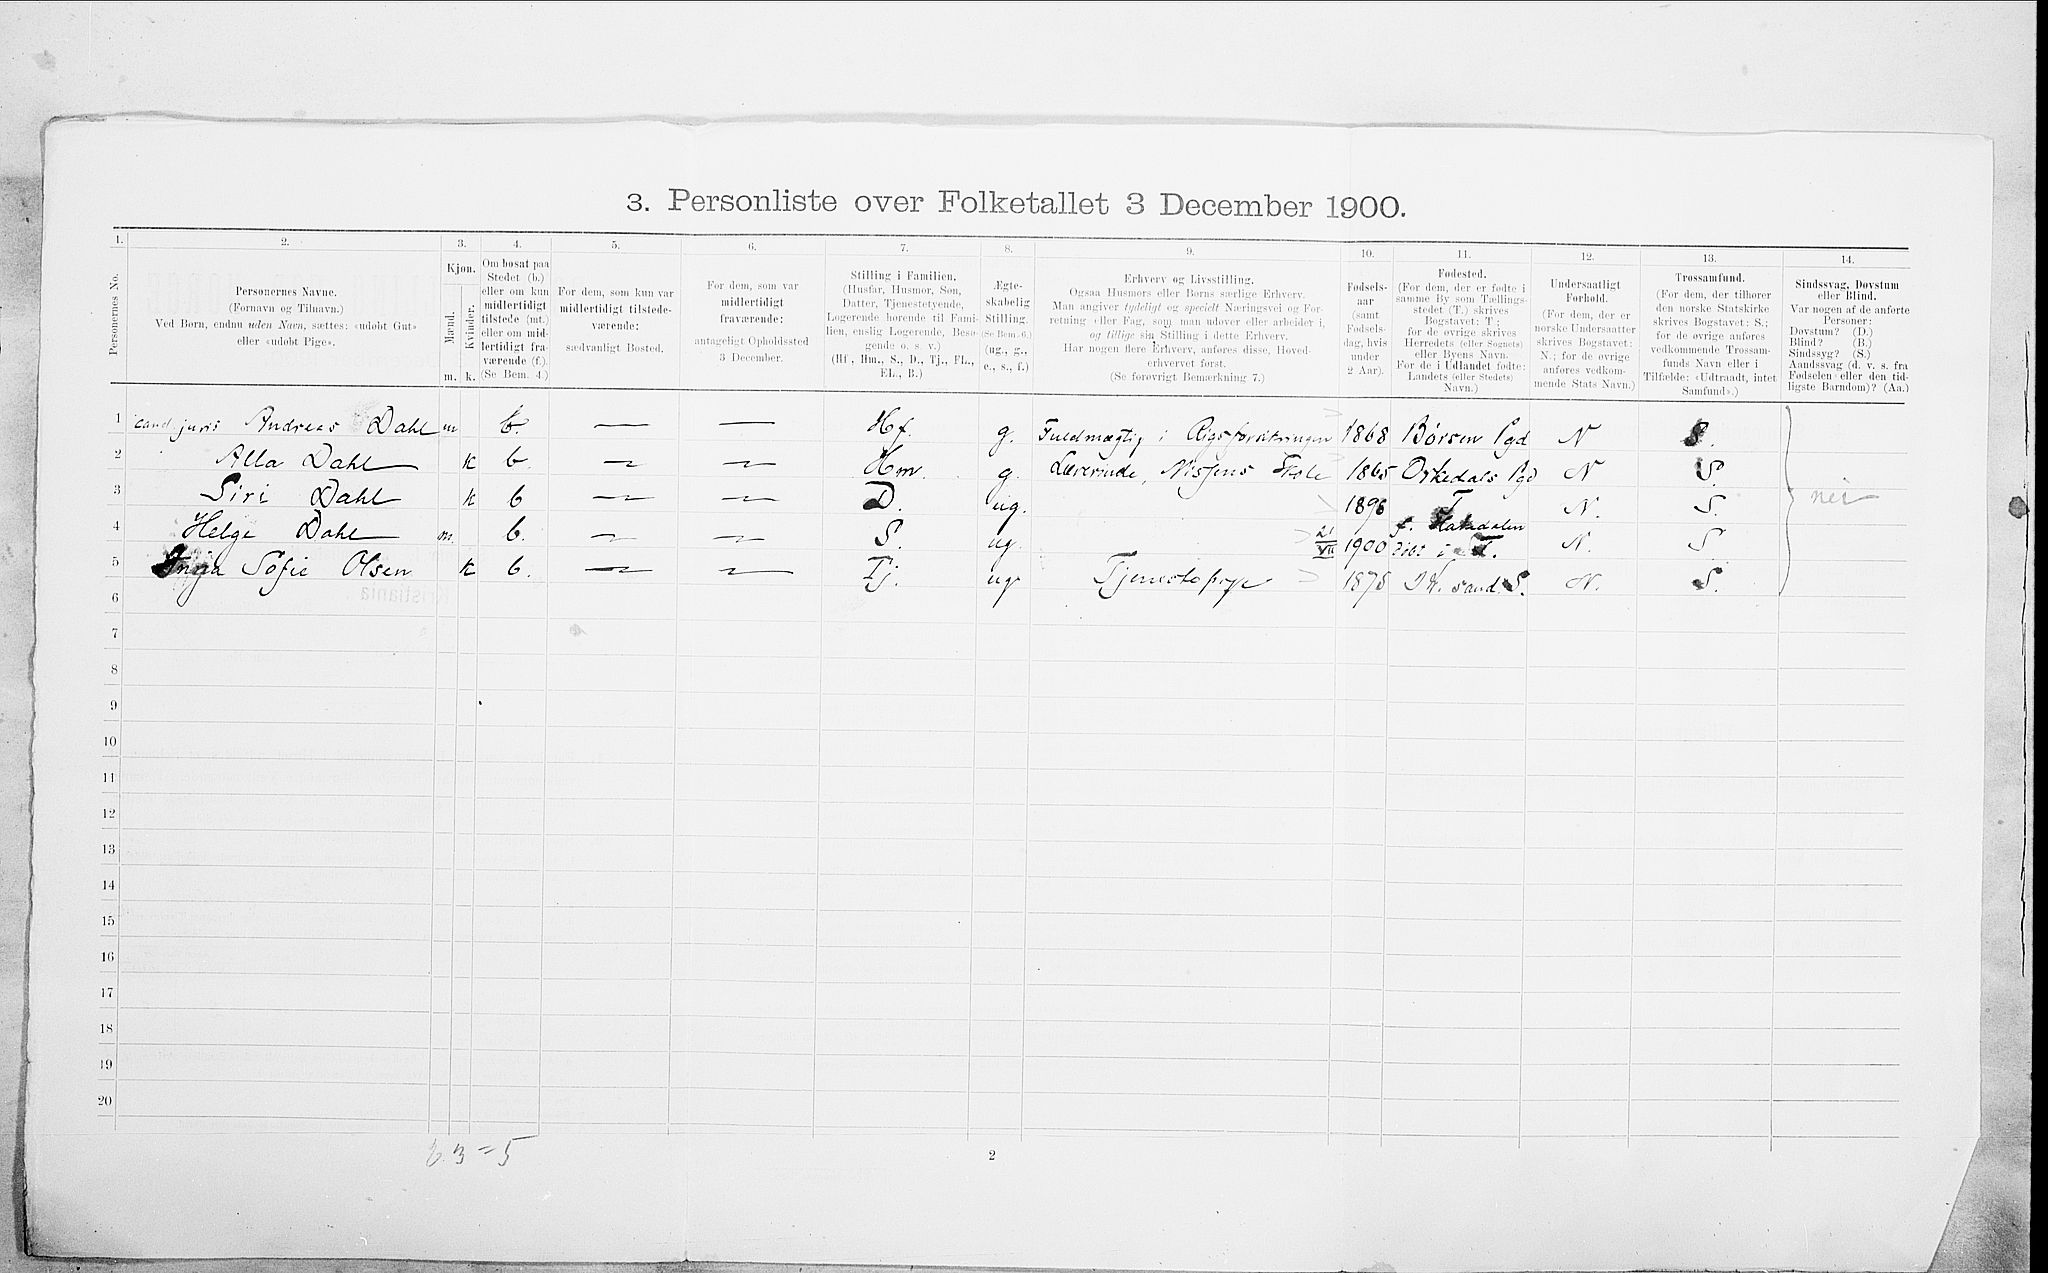 3. Personliste over Folketallet 3 December 1900.
1. 2. 3. 4. 5. 6. 7. 8. 9. 10. 11. 12. 13. 14.
Personernes No.
Personernes Navne.
(Fornavn og Tilnavn.)
Ved Børn, endnu uden Navn, sættes: «udøbt Gut»
eller «udøbt Pige».
Kjøn.
Mænd.
Kvinder.
m. k.
Om bosat paa
Stedet (b.)
eller om kun
midlertidigt
tilstede (mt.)
eller om mid-
lertidigt fra-
værende (f.).
(Se Bem. 4.)
For dem, som kun var
midlertidigt tilstede-
værende:
sædvanligt Bosted.
For dem, som var
midlertidigt
fraværende:
antageligt Opholdssted
3 December.
Stilling i Familien.
(Husfar, Husmor, Søn,
Datter, Tjenestetyende,
Logerende hørende til Fami-
lien, enslig Logerende, Besø-
gende o. s. v.)
(Hf., Hm., S., D., Tj., FL.,
EL., B.)
Ægte-
skabelig
Stilling.
(Se Bem. 6.)
(ug., g.,
e., s., f.)
Erhverv og Livsstilling.
Ogsaa Husmors eller Børns særlige Erhverv.
Man angiver tydeligt og specielt Næringsvei og For-
retning eller Fag, som man udøver eller arbeider i,
og tillige sin Stilling i dette Erhverv.
Har nogen flere Erhverv, anføres disse, Hoved-
erhvervet først.
(Se forøvrigt Bemærkning 7.)
Fødsels-
aar
(samt
Fødsels-
dag, hvis
under
2 Aar).
Fødested.
(For dem, der er fødte i
samme By som Tællings-
stedet (T.) skrives
Bogstavet: T;
for de øvrige skrives
Herredets (eller Sognets)
eller Byens Navn.
For de i Udlandet fødte:
Landets (eller Stedets)
Navn.)
Undersaatligt
Forhold.
(For dem, der er
norske Undersaatter
skrives Bogstavet:
N.; for de øvrige
anføres vedkom-
mende Stats Navn.)
Trossamfund.
(For dem, der tilhører
den norske Statskirke
skrives Bogstavet: S.;
for de øvrige anføres
vedkommende Trossam-
funds Navn eller i
Tilfælde: «Udtraadt, intet
Samfund».)
Sindssvag, Døvstum
eller Blind.
Var nogen af de anførte
Personer:
Døvstum? (D.)
Blind? (B.)
Sindssyg? (S.)
Aandssvag (d. v. s. fra
Fødselen eller den tid-
ligste Barndom)? (Aa.)
1 cand. juris Andreas Dahl m b. — — Hf. g. Fuldmægtig i Rigsforsikringen 1868 Børsen Pgd N S.
2 Alla Dahl k b. — — Hm. g. Lærerinde, Nissens Skole 1865 Orkedals Pgd N S.
3 Siri Dahl k b — — D. ug. 1896 T N. S. nei
4 Helge Dahl m. b. — — S. ug. 21/VII 1900 f.
døbt i T. N. S.
5 Inga Sofie Olsen k b. — — Tj. ug. Tjenestepige 1875 N. S.
6
7
8
9
10
11
12
13
14
15
16
17
18
19
20
3 = 5
2